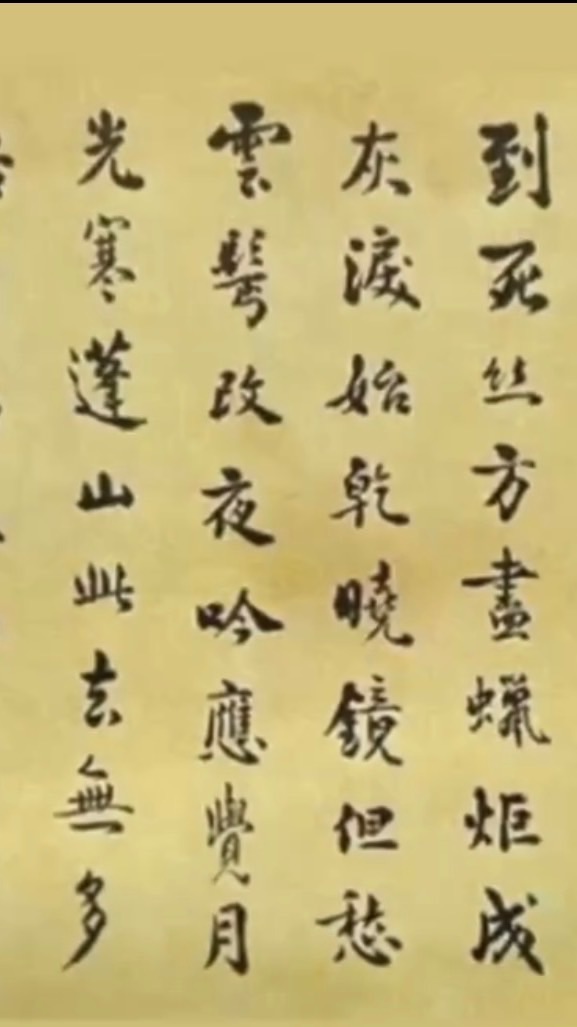 到死丝方盡蠟炬成
灰淚始乾曉鏡但愁
雲鬢改夜吟應覺月
光寒蓬山此去無多